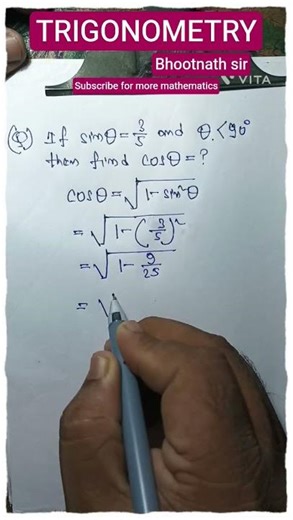 TRIGONOMETRY
Bhootnath sir
VITA
Subscribe for more mathematics
(Q) If sinθ = 3/5 and θ < 90°
then find cosθ = ?
cosθ = √(1 - sin²θ)
= √(1 - (3/5)²)
= √(1 - 9/25)
= √